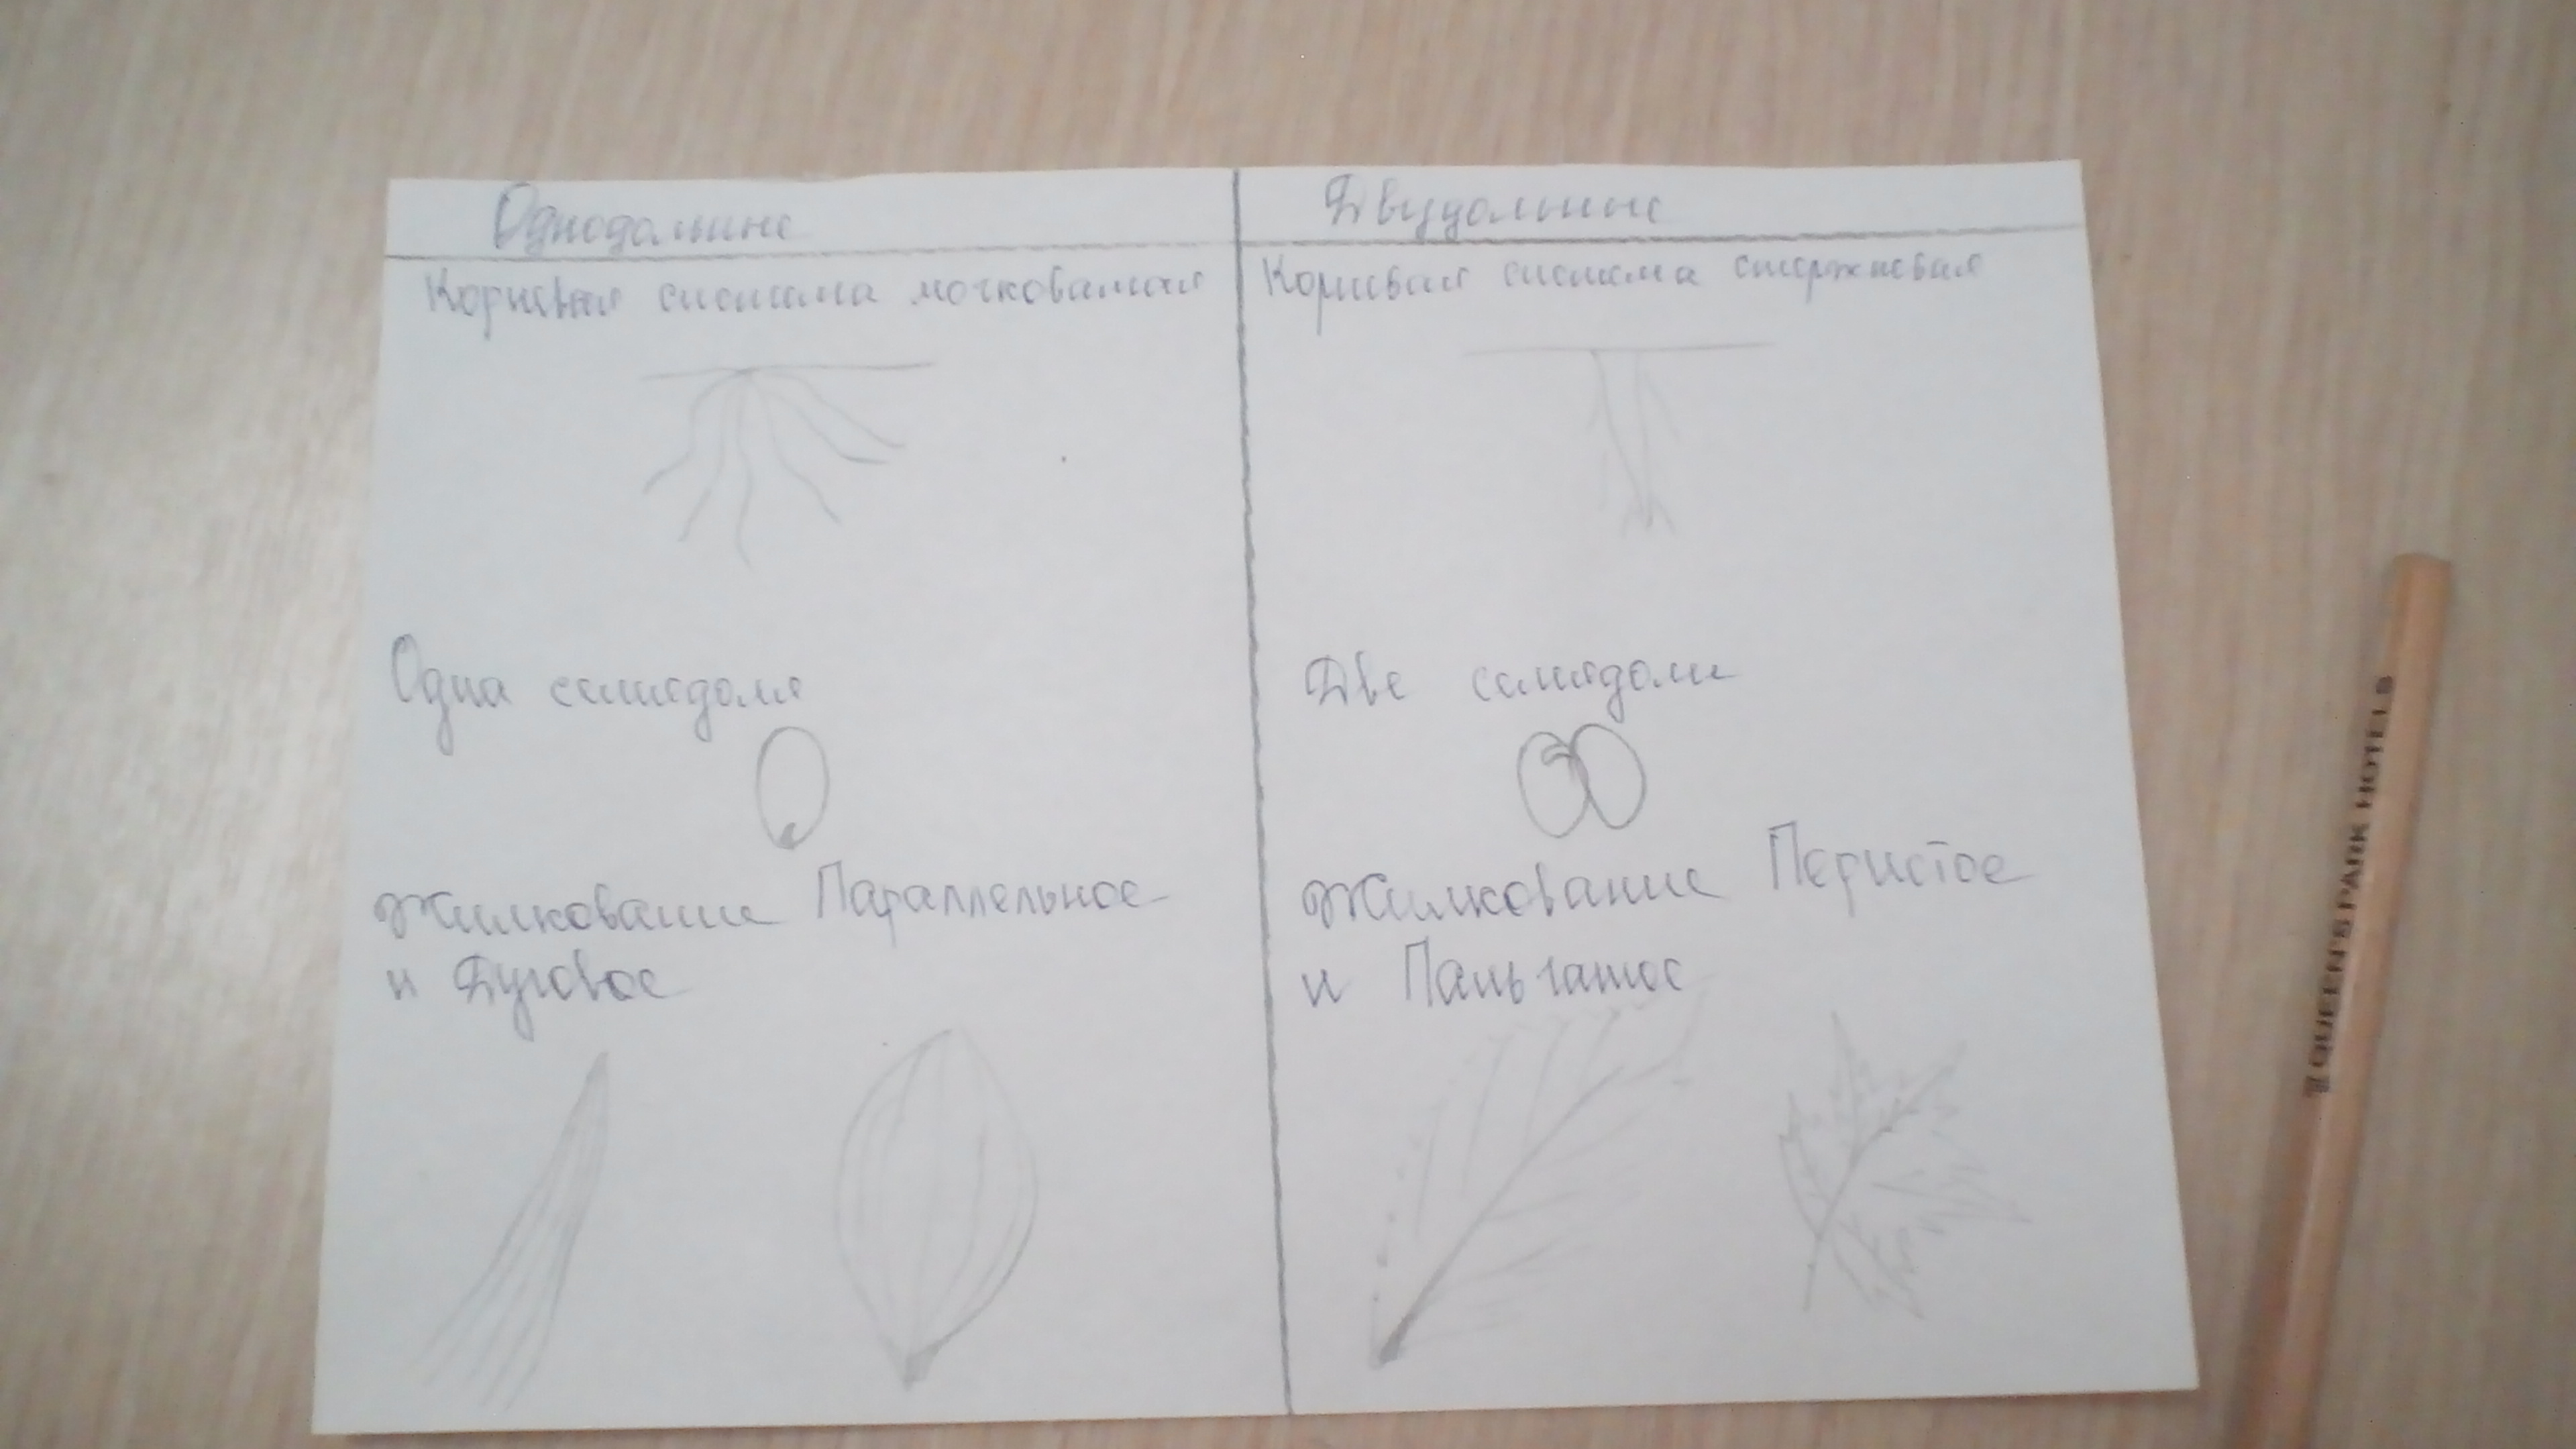 Однодольные
Корневая система мочковатая
Одна семедоля
Жилкование Параллельное
и Дуговое
Двудольные
Корневая система стержневая
Две семядоли
Жилкование Перистое
и Пальчатое
QUEEN'S PARK HOTELS